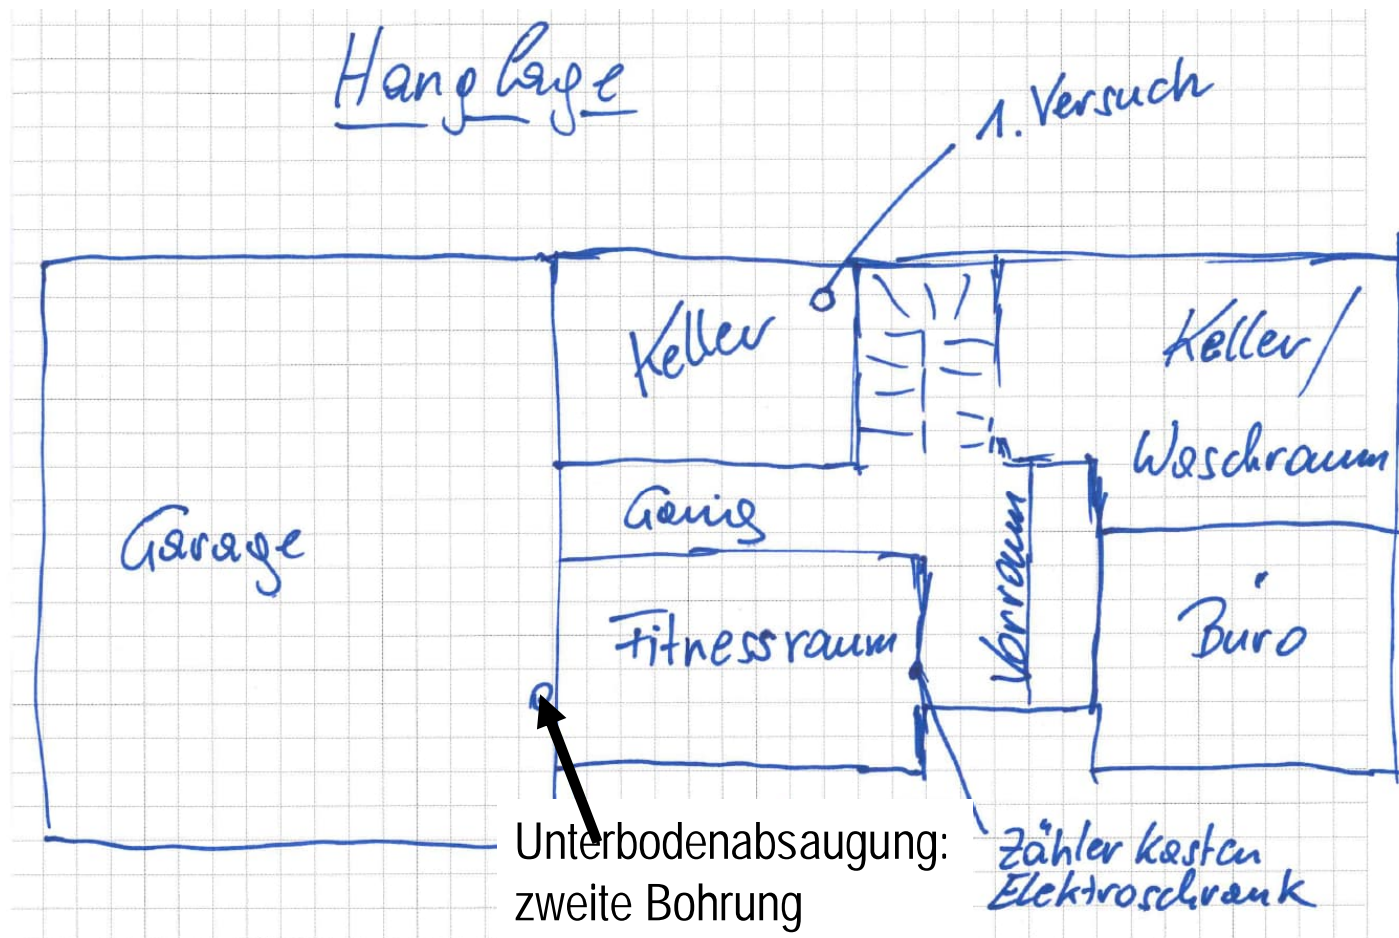 Hanglage
1. Versuch
Keller
Keller/
Waschraum
Gang
Garage
Vorraum
Fitnessraum
Büro
Unterbodenabsaugung:
zweite Bohrung
Zählerkasten
Elektroschrank